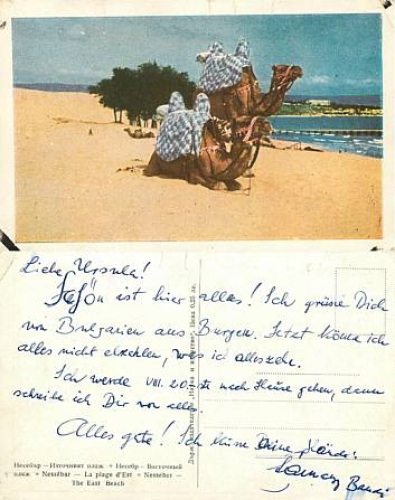 Liebe Ursula!
Schön ist hier alles! Ich grüsse Dich
von Bulgarien aus Burgas. Jetzt könnte ich
alles nicht erzehlen, was ich alles sehe.
Ich werde VIII. 20. ste nach Hause gehen, dann
schreibe ich Dir von alles.
Alles gute! Ich küsse Deine Hände:
Несебър — Източният плаж • Несебр — Восточный
пляж • Nessébar — La plage d'Est • Nessebar —
The East Beach
Държавно издателство „Наука и изкуство“. Цена 0,25 лв.